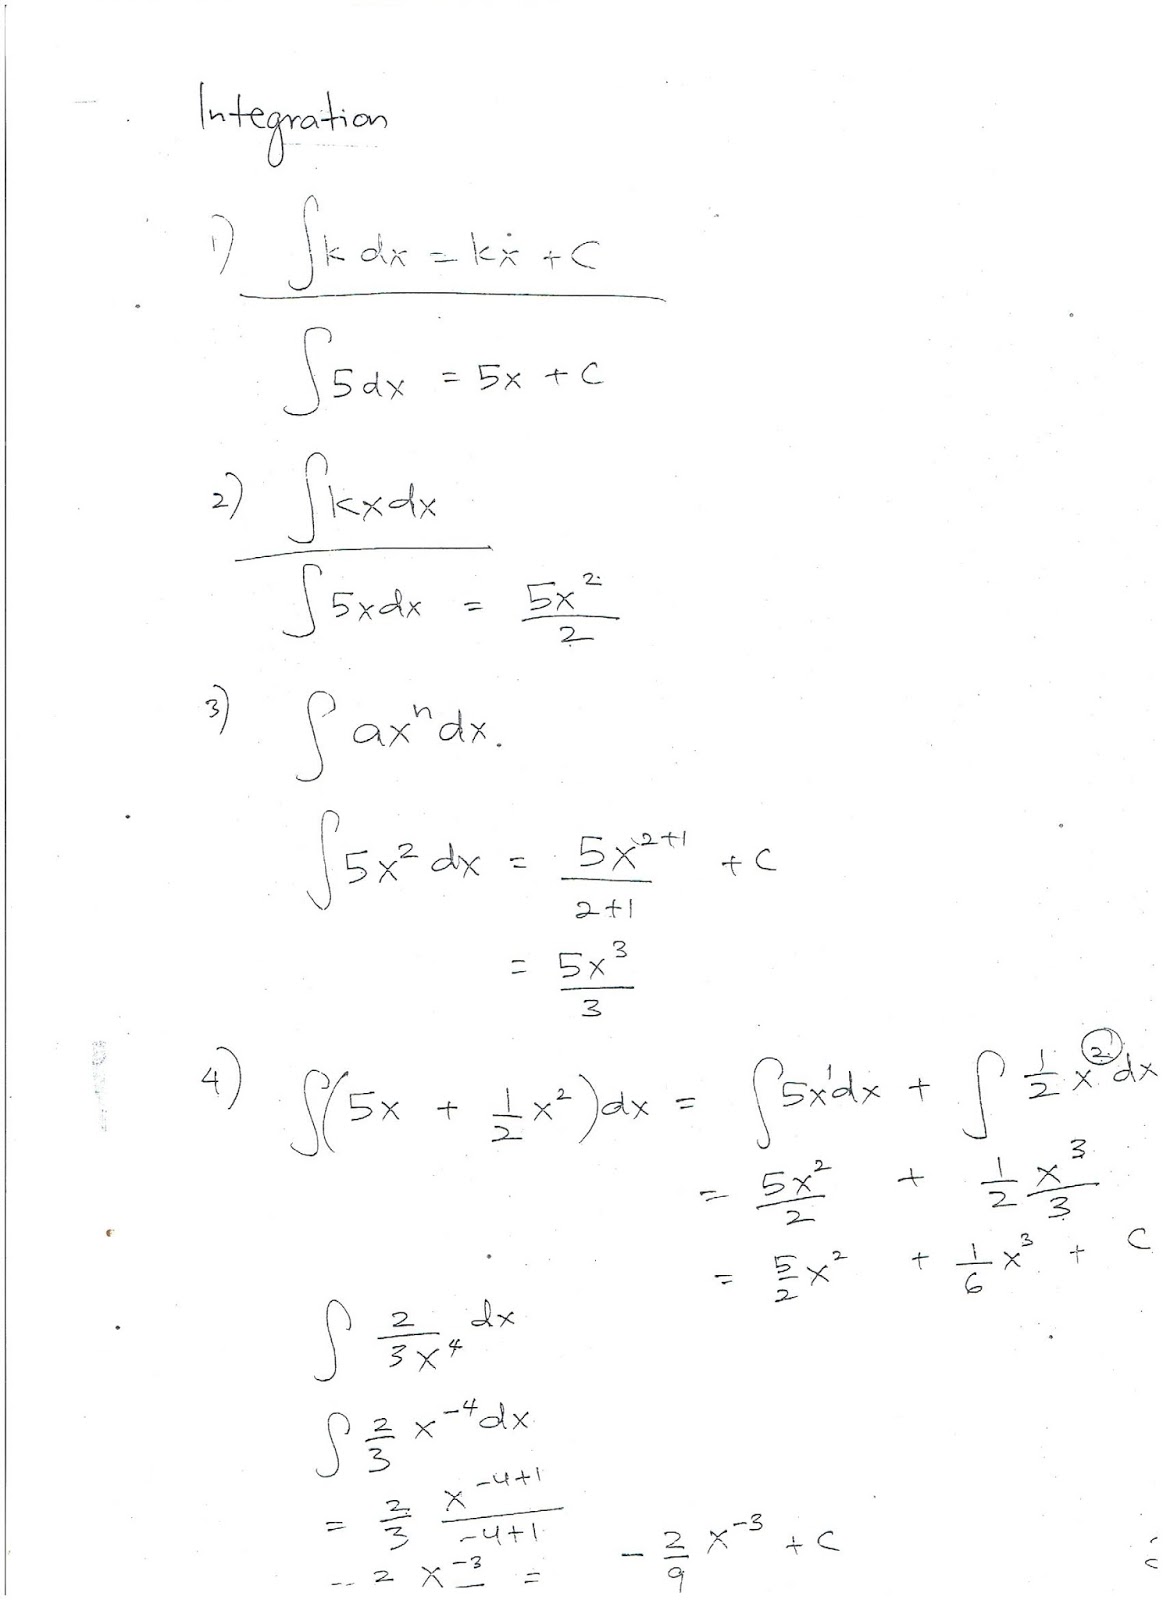 Integration
1) ∫k dx = kx + C
∫5dx = 5x + C
2) ∫kxdx
∫5xdx = 5x²/2
3) ∫ax^n dx.
∫5x² dx = 5x^(2+1)/(2+1) + C
= 5x³/3
4) ∫(5x + 1/2 x²)dx = ∫5x¹dx + ∫1/2 x²dx
= 5x²/2 + 1/2 x³/3
= 5/2 x² + 1/6 x³ + C
∫ 2/(3x⁴) dx
∫ 2/3 x⁻⁴dx
= 2/3 x^(-4+1)/(-4+1)
2 x⁻³ = - 2/9 x⁻³ + C